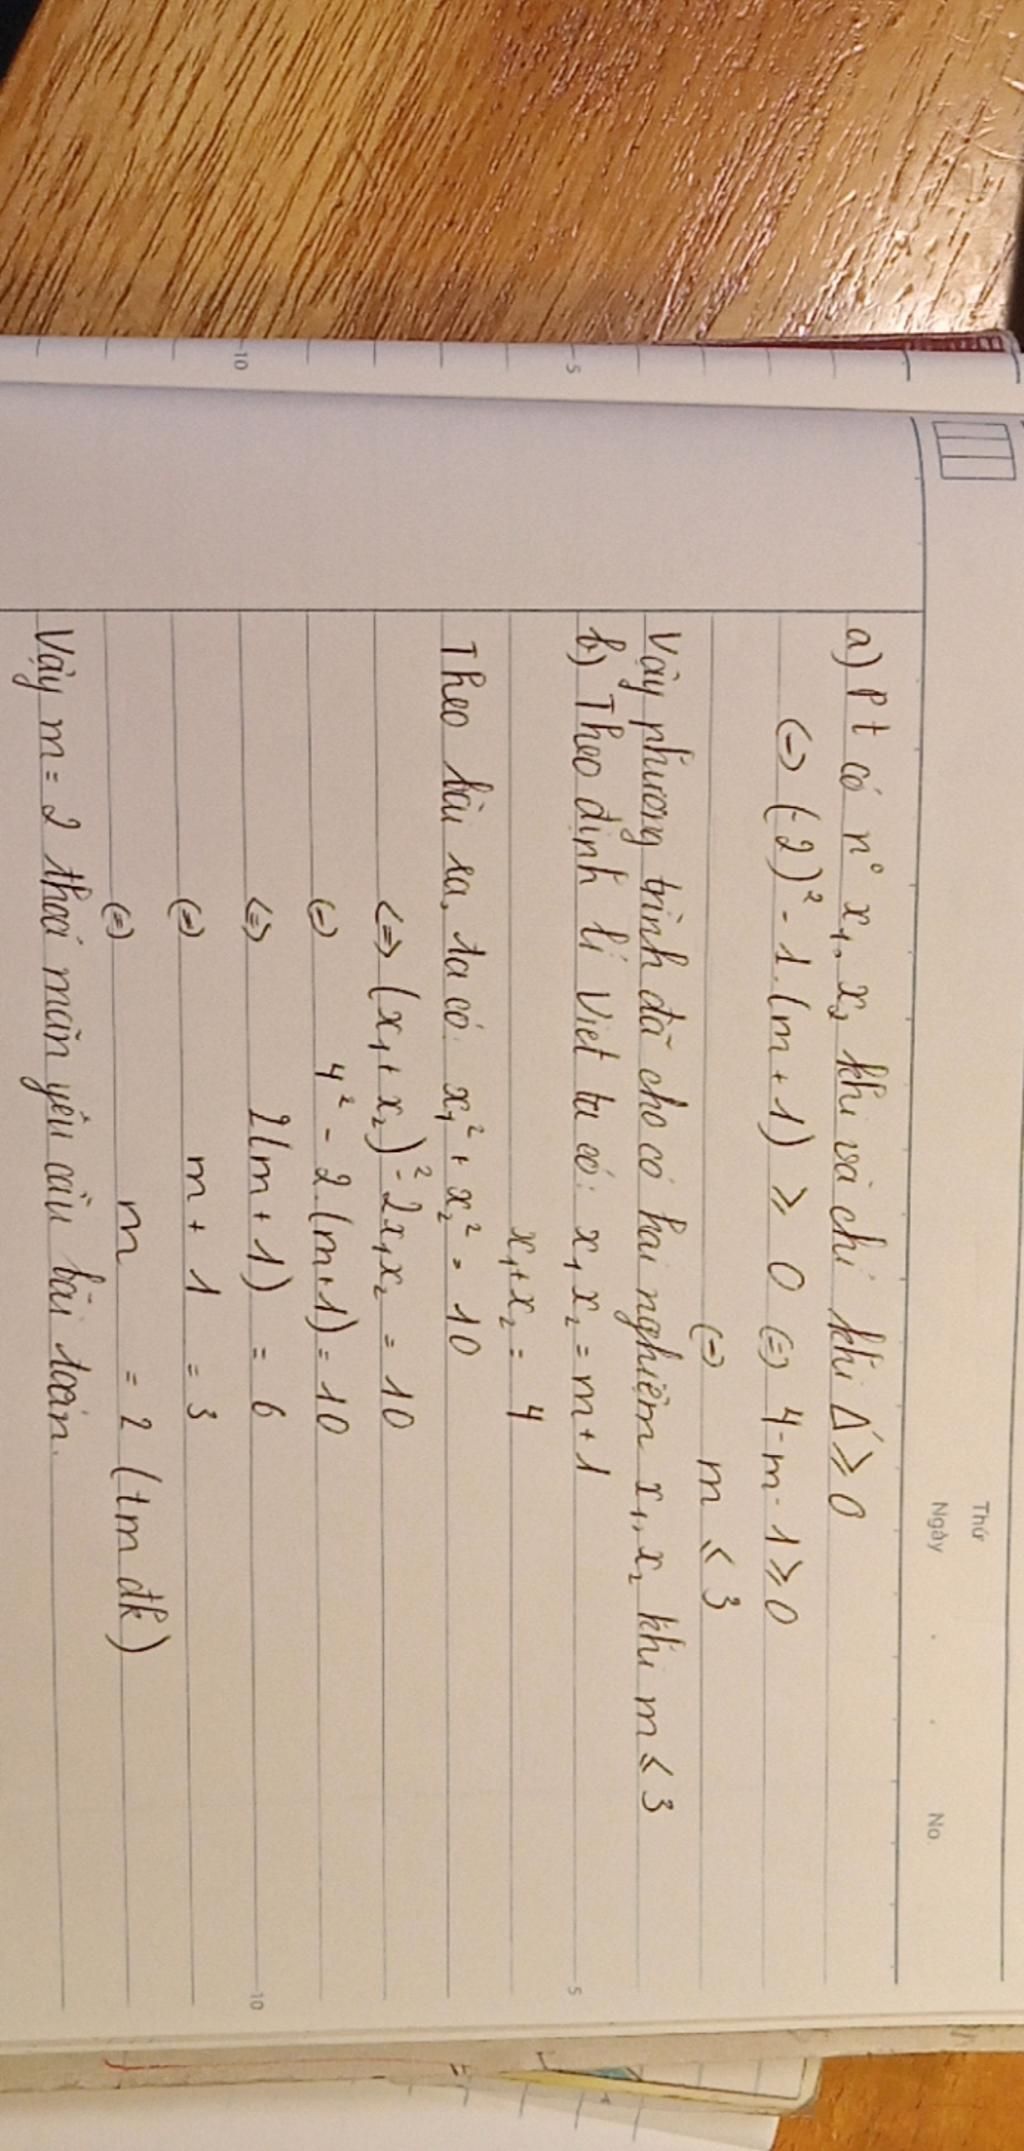 Thứ
Ngày No.
a) Pt có n° x₁, x₂ khi và chỉ khi Δ' ≥ 0
(=) (-2)² - 1.(m + 1) ≥ 0 (=) 4 - m - 1 ≥ 0
(=) m ≤ 3
Vậy phương trình đã cho có hai nghiệm x₁, x₂ khi m ≤ 3
b) Theo định lí Viet ta có: x₁x₂ = m + 1
x₁ + x₂ = 4
Theo bài ra, ta có: x₁² + x₂² = 10
<=> (x₁ + x₂)² - 2x₁x₂ = 10
(=) 4² - 2.(m+1) = 10
<=> 2(m + 1) = 6
(=) m + 1 = 3
(=) m = 2 (tm đk)
Vậy m = 2 thoả mãn yêu cầu bài toán.
5
10
5
10